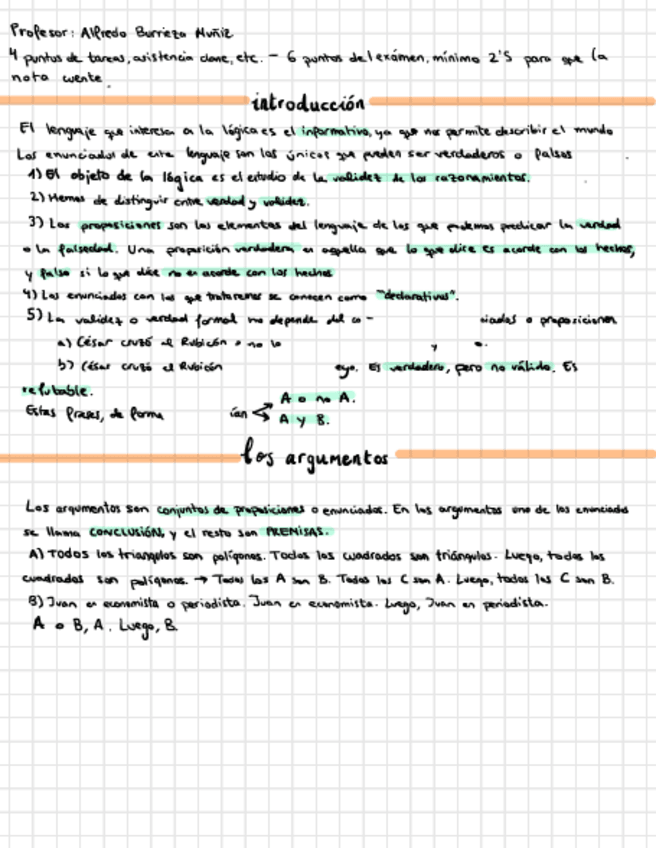 Profesor: Alfredo Burrieza Muñiz
4 puntos de tareas, asistencia clase, etc. – 6 puntos del exámen, mínimo 2'5 para que la
nota cuente.
introducción
El lenguaje que interesa a la lógica es el informativo, ya que nos permite describir el mundo
Los enunciados de este lenguaje son los únicos que pueden ser verdaderos o falsos
1) El objeto de la lógica es el estudio de la validez de los razonamientos.
2) Hemos de distinguir entre verdad y validez.
3) Las proposiciones son los elementos del lenguaje de los que podemos predicar la verdad
o la falsedad. Una proposición verdadera es aquella que lo que dice es acorde con los hechos,
y falso si lo que dice no es acorde con los hechos
4) Los enunciados con los que trataremos se conocen como "declarativos".
5) La validez o verdad formal no depende del co- ciados o proposiciones
a) César cruzó el Rubicón o no lo y
b) César cruzó el Rubicón eyo. Es verdadero, pero no válido. Es
refutable.
Estas frases, de forma ían A o no A.
A y B.
los argumentos
Los argumentos son conjuntos de proposiciones o enunciados. En los argumentos uno de los enunciados
se llama CONCLUSIÓN, y el resto son PREMISAS.
A) Todos los triangulos son polígonos. Todos los cuadrados son triángulos. Luego, todos los
cuadrados son polígonos. → Todos los A son B. Todos los C son A. Luego, todos los C son B.
B) Juan es economista o periodista. Juan es economista. Luego, Juan es periodista.
A o B, A. Luego, B.